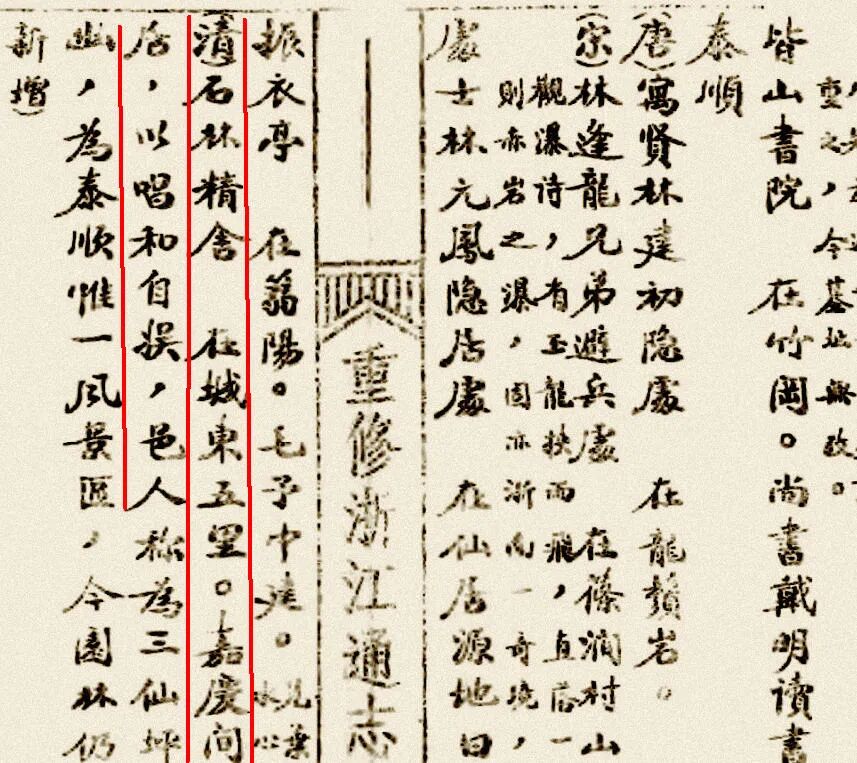 重之，今墓址無改。
皆山書院　在竹岡。尚書戴明讀書
泰順
（唐）寓賢林建初隐處　在龍頷岩。
（宋）林逢龍兄弟避兵處　在篠澗村山
觀瀑诗，有玉龍挾而飛，直落一
則亦岩之瀑，固亦浙南一奇境，
處士林元鳳隐居處　在仙居源地曰
重修浙江通志
振衣亭　在蒻陽。毛予中建。見葉
水心
（清）石林精舍　在城東五里。嘉慶间
居，以唱和自娱，邑人称為三仙坪
幽，為泰顺惟一風景區，今園林仍
新增）